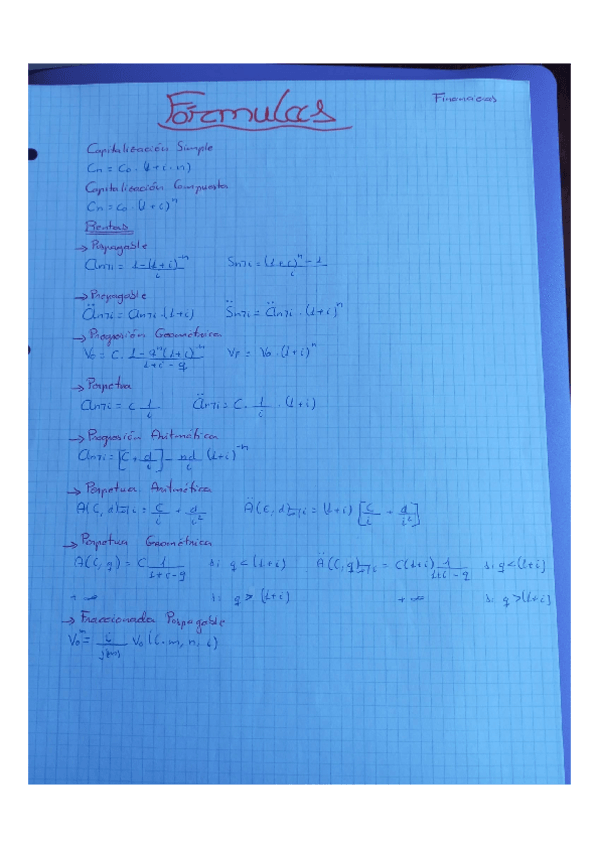 Fórmulas
Financieras
Capitalización Simple
Cn = C0 · (1+i·n)
Capitalización Compuesta
Cn = C0 · (1+i)^n
Rentas
→ Pospagable
an¬i = 1-(1+i)^-n / i    Sn¬i = (1+i)^n - 1 / i
→ Prepagable
än¬i = an¬i · (1+i)    S̈n¬i = än¬i · (1+i)^n
→ Progresión Geométrica
V0 = C · 1-q^n(1+i)^-n / 1+i-q    VF = V0 · (1+i)^n
→ Perpetua
an¬i = C 1/i    än¬i = C · 1/i · (1+i)
→ Progresión Aritmética
an¬i = [C + d/i] - nd/i (1+i)^-n
→ Perpetua Aritmética
A(C,d)∞¬i = C/i + d/i²    Ä(C,d)∞¬i = (1+i) [C/i + d/i²]
→ Perpetua Geométrica
A(C,q) = C 1/1+i-q    si q < (1+i)    Ä(C,q)∞¬i = C(1+i) 1/1+i-q    si q < (1+i)
+ ∞    si q > (1+i)    + ∞    si q > (1+i)
→ Fraccionada Pospagable
V0^m = i/j(m) V0 (C·m, n, i)